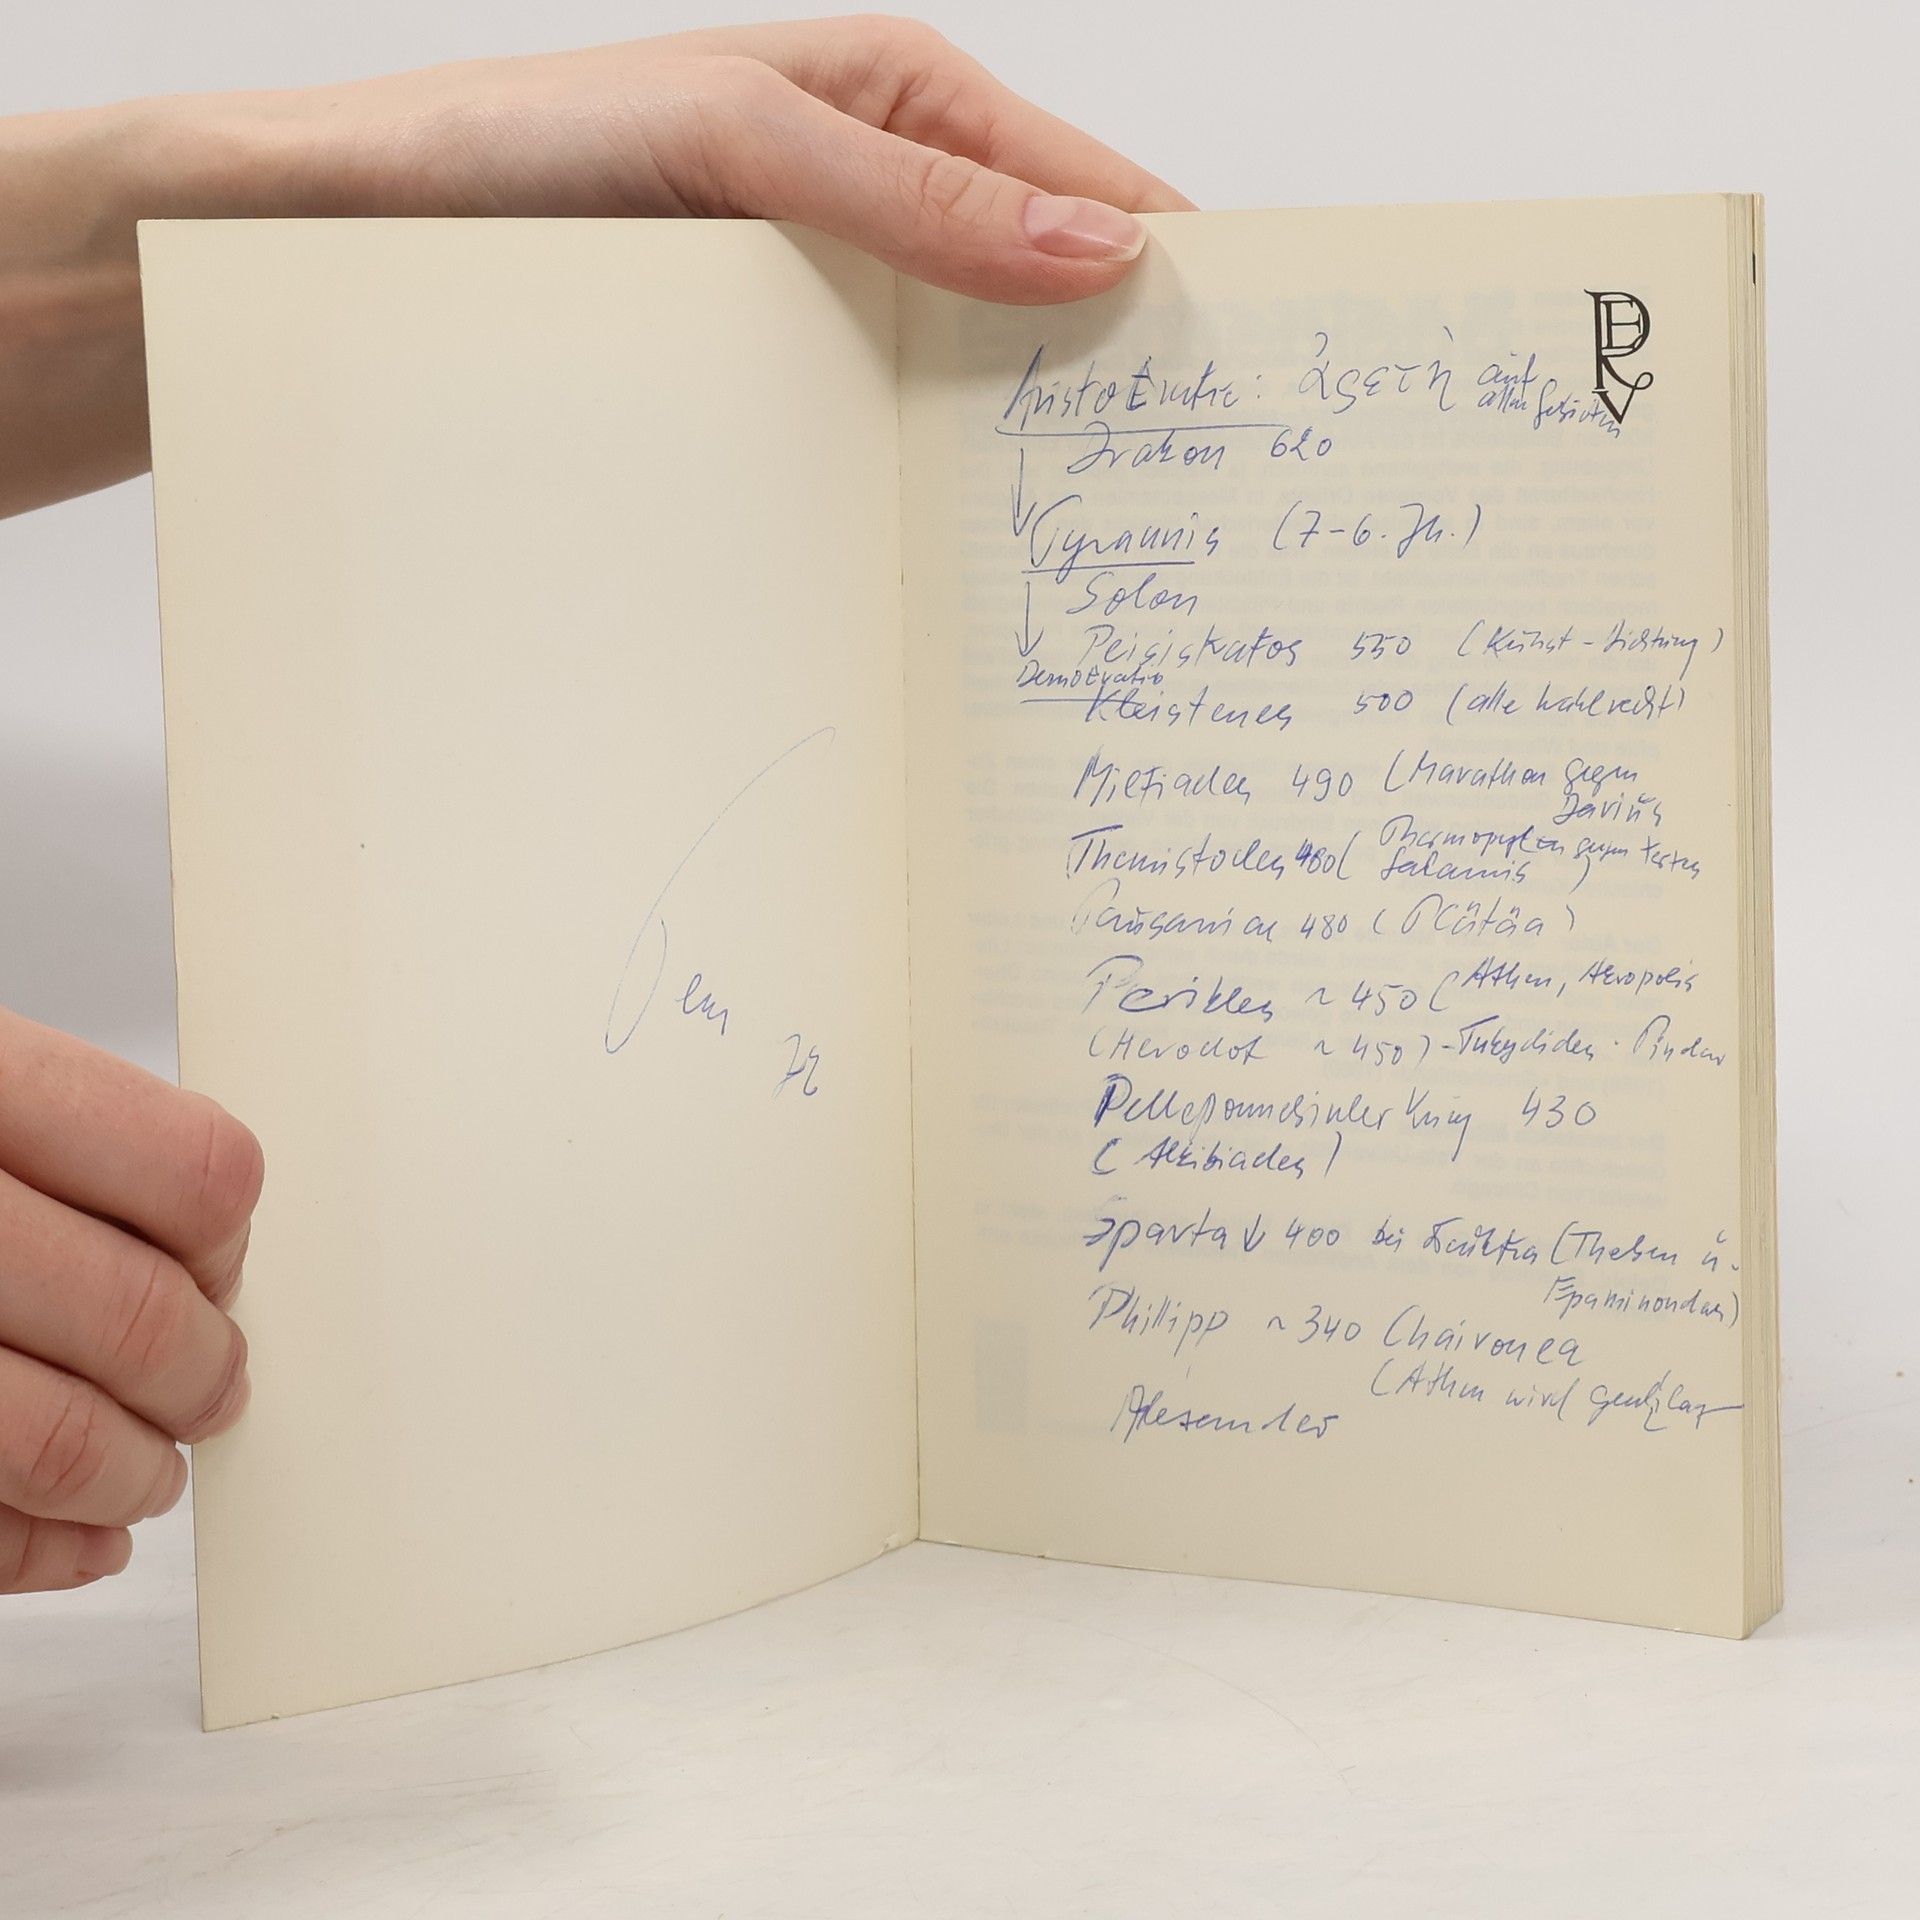 72
RDE
Aristokratie: ἀρετὴ auf allen Gebieten
Drakon 620
Tyrannis (7-6. Jh.)
Solon
Peisistratos 550 (Kunst - Dichtung)
Demokratie
Kleistenes 500 (alle Wahlrecht)
Miltiades 490 (Marathon gegen Darius
Themistocles 480 (Thermopylen gegen Xerxes
Salamis)
Pausanias 480 (Platäa)
Perikles ~ 450 (Athen, Akropolis
(Herodot ~ 450) - Tukydides · Pindar
Pelleponnesischer Krieg 430
(Alkibiades)
Sparta ↓ 400 bei Leuktra (Theben u.
Epaminondas)
Phillipp ~ 340 Chaironea
(Athen wird
Alexander